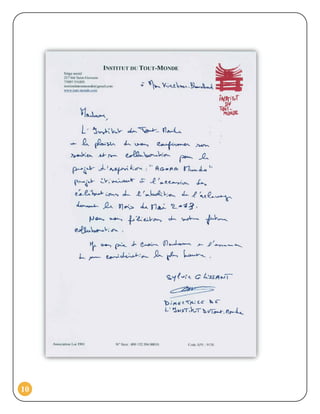 INSTITUT DU TOUT-MONDE
Siège social
217 bd Saint-Germain
75007 PARIS
www.tout-monde.com
à
INSTITUT
DU
TOUT-
MONDE
Madame,
L'Institut du Tout-Monde
a le plaisir de vous confirmer son
soutien et sa collaboration pour le
projet d'exposition : "AGORA Mundo"
projet itinérant à l'occasion des
célébrations de l'abolition de l'esclavage
durant le Mois de Mai 2013.
Nous nous félicitons de notre future
collaboration.
Je vous prie de croire Madame à l'assurance
de ma considération la plus haute.
Sylvie GLISSANT
DIRECTRICE DE
L'INSTITUT Du Tout-Monde
Association Loi 1901
N° Siret :
Code APE :
10